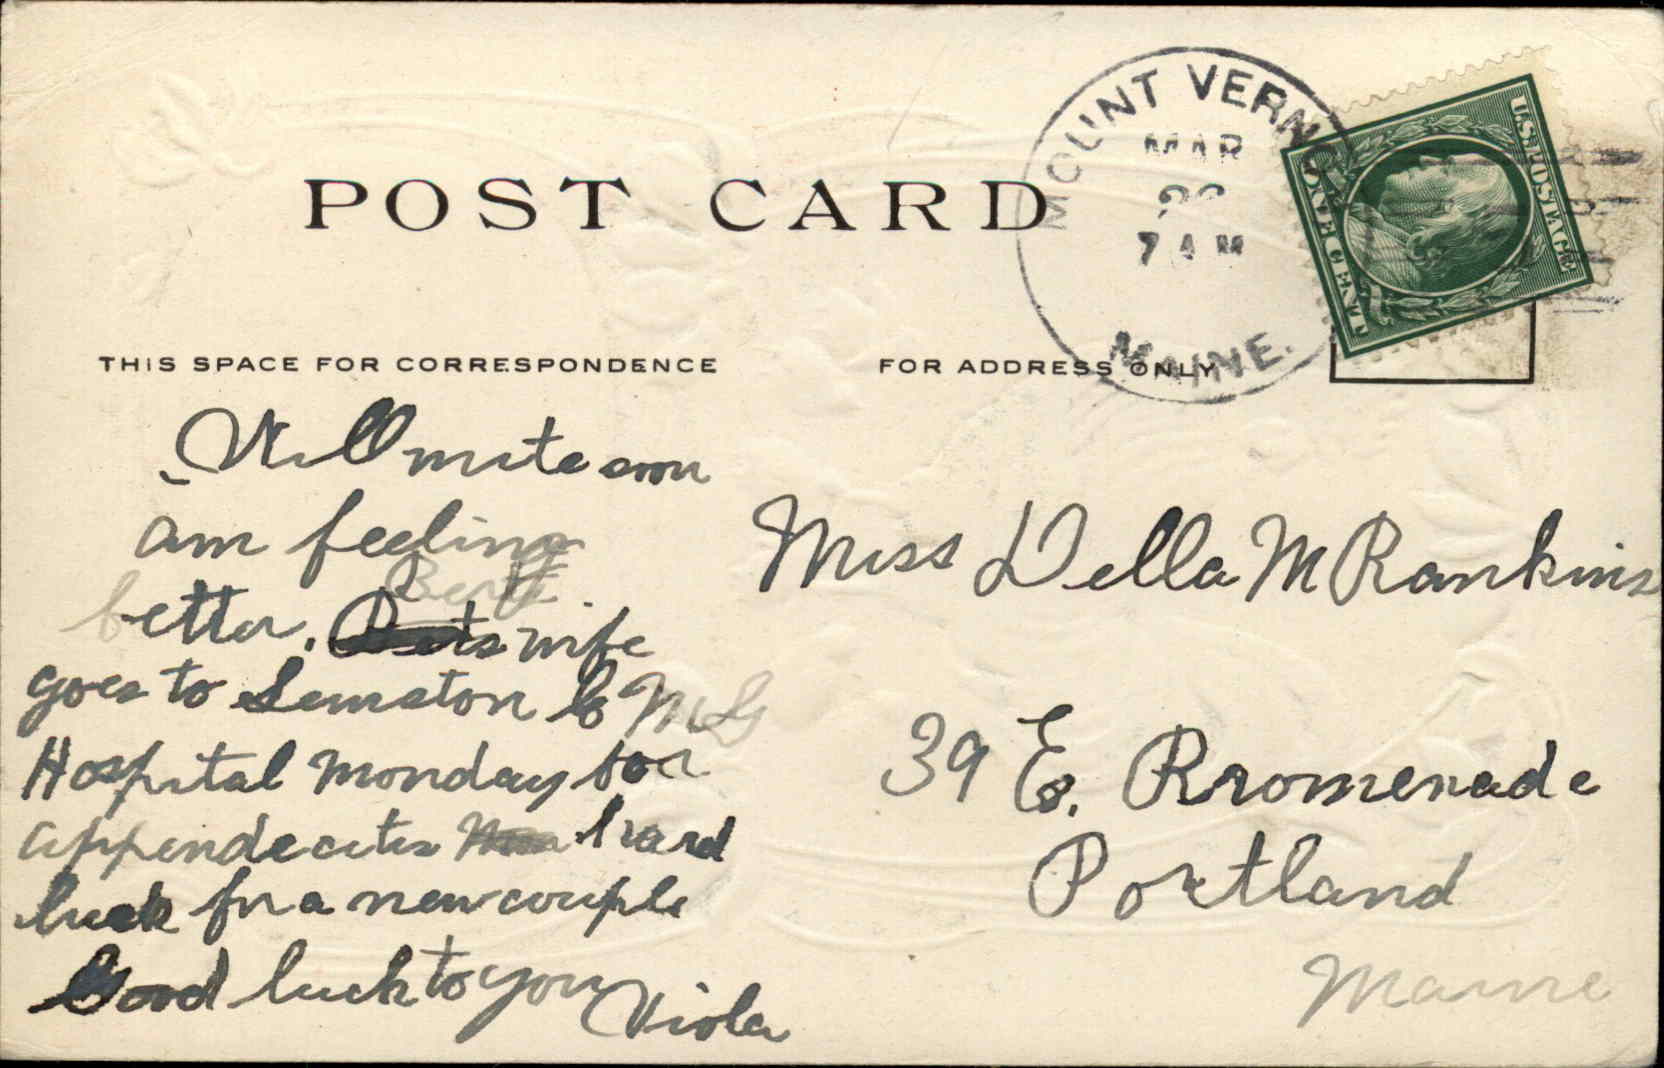 POST CARD
MOUNT VERNON
MAR
7 AM
MAINE.
U.S. POSTAGE
ONE CENT
THIS SPACE FOR CORRESPONDENCE
FOR ADDRESS ONLY
Will write soon
am feeling
better. Berts wife
goes to Lewiston to
Hospital Monday for
appendecites hard
luck for a new couple
Good luck to you
Viola
Miss Della M Rankins
39 E. Promenade
Portland
Maine